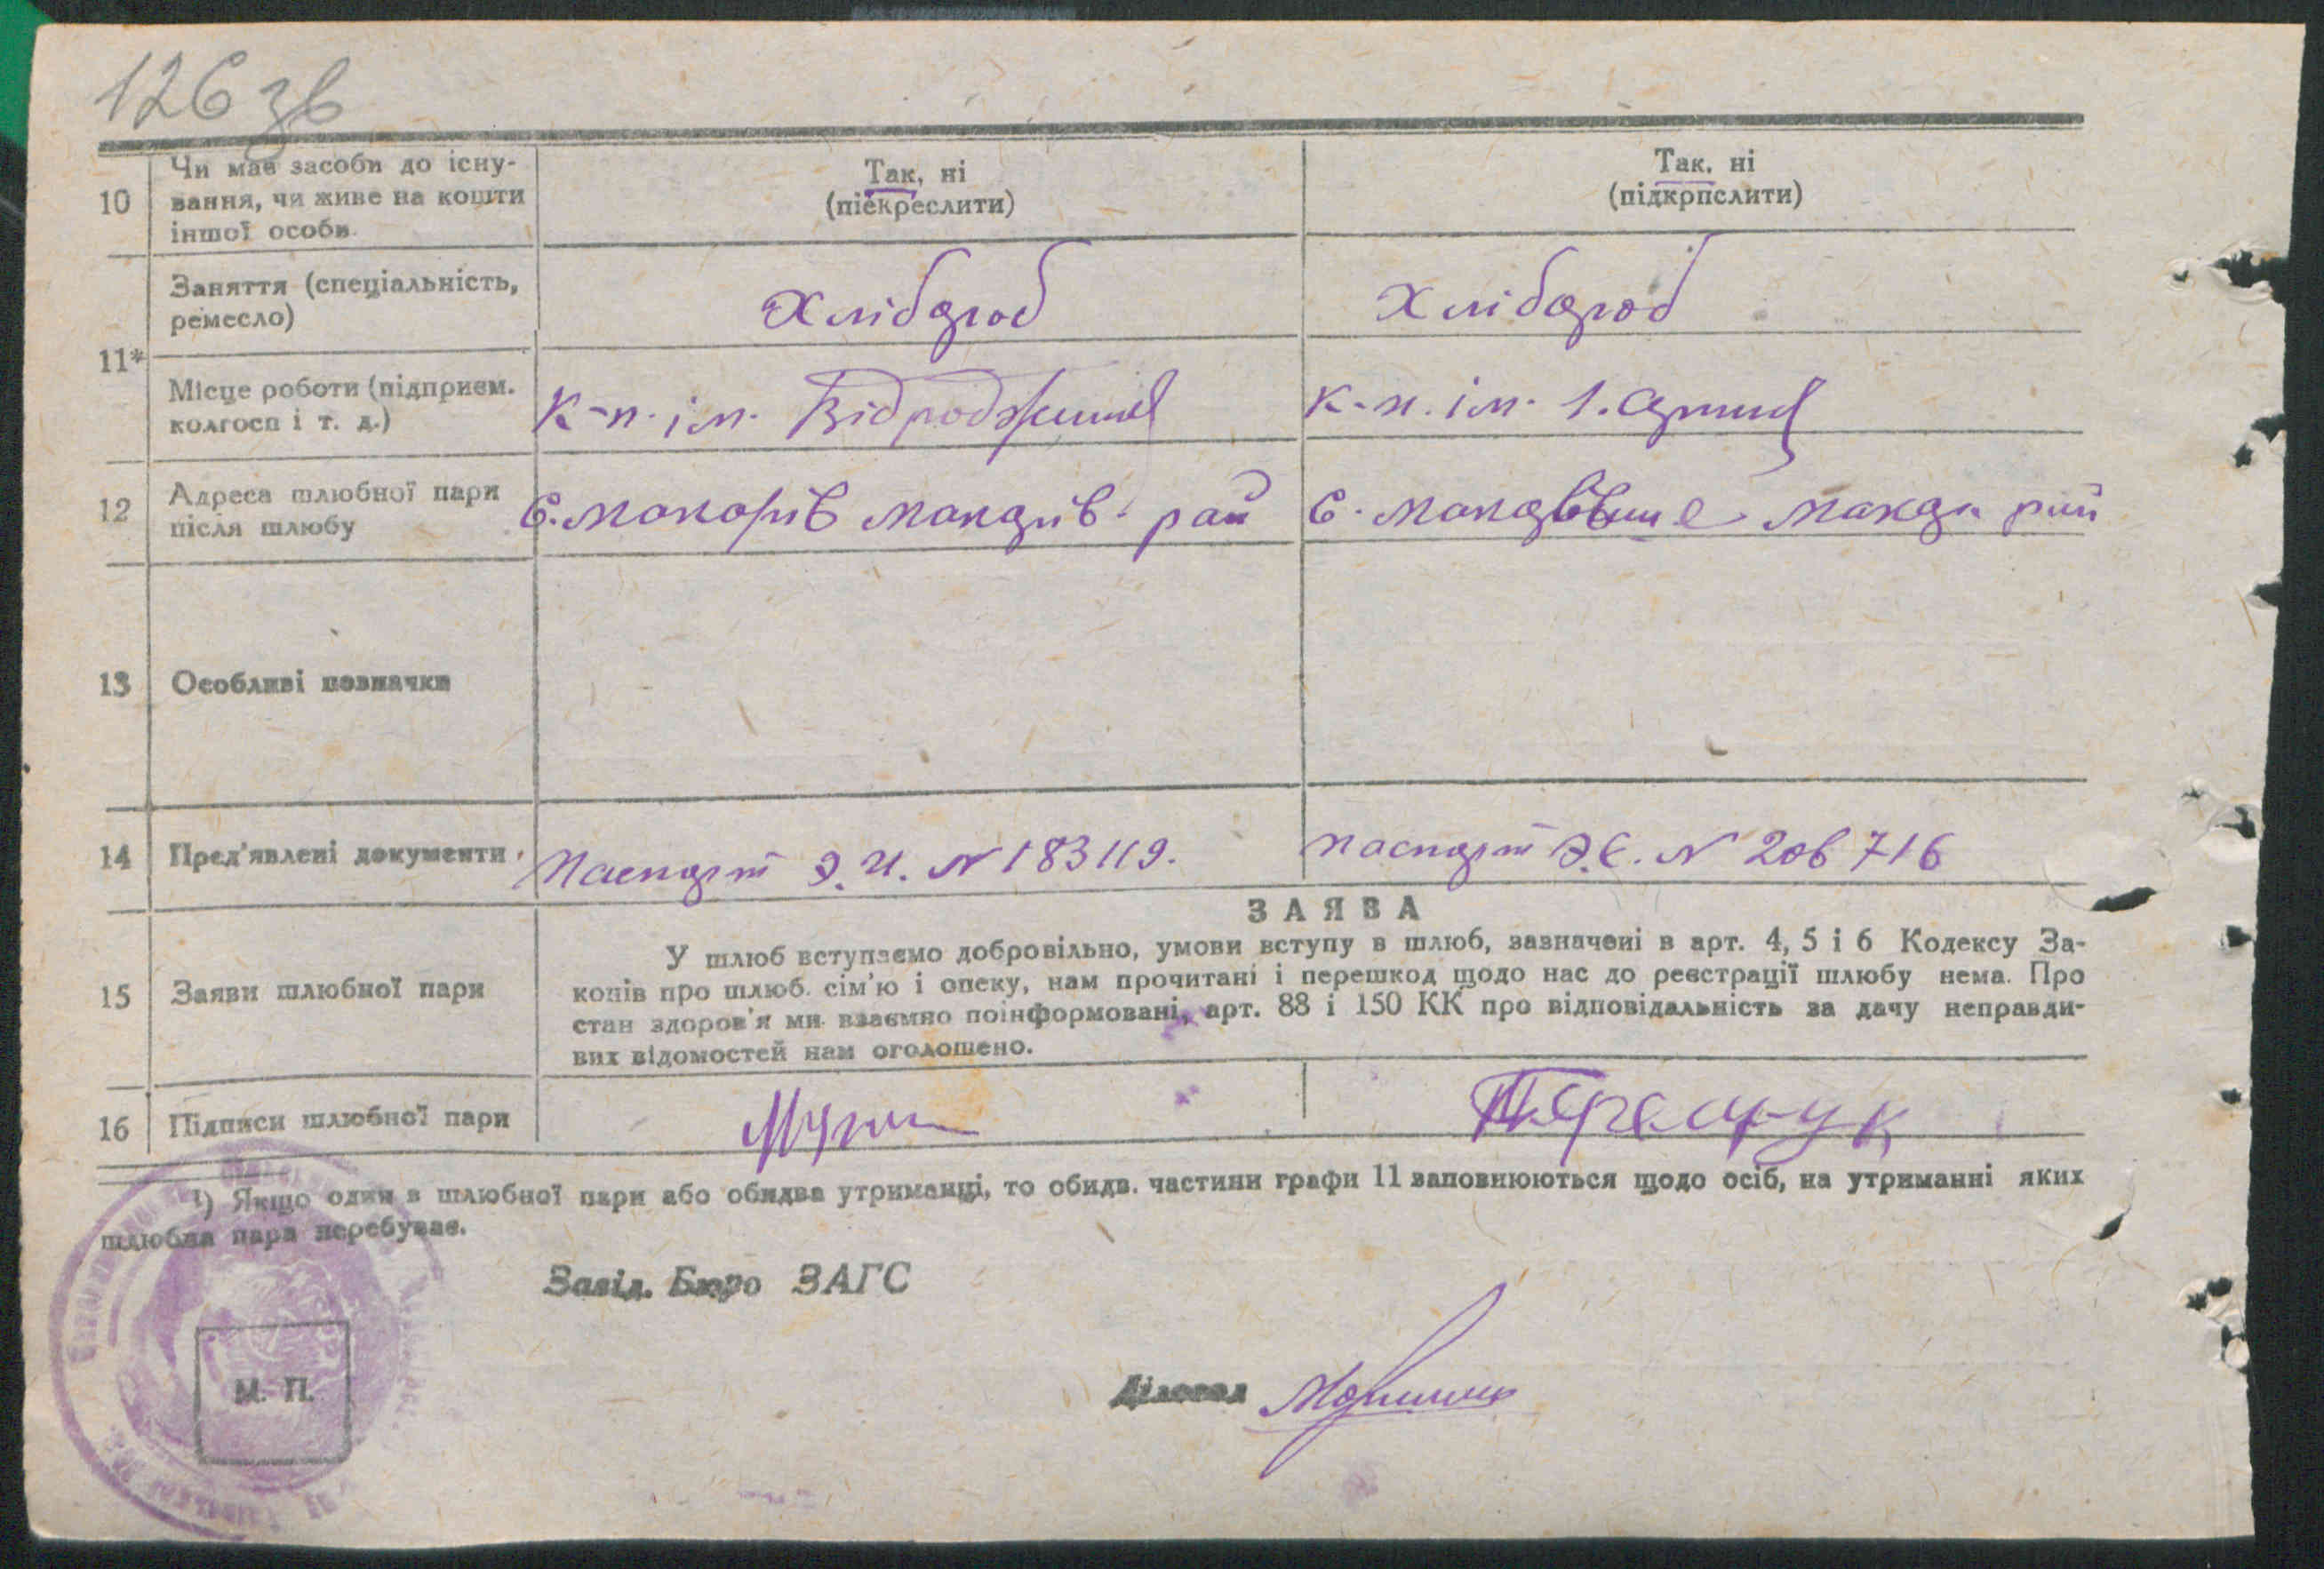 126 зв
10 Чи має засоби до існу-
вання, чи живе на кошти
іншої особи
Так, ні
(піекреслити)
Так, ні
(підкрпслити)
11* Заняття (спеціальність,
ремесло)
Хлібороб
Хлібороб
Місце роботи (підприєм.
колгосп і т. д.)
к-п. ім. Відродження
к-п. ім. 1. Армії
12 Адреса шлюбної пари
після шлюбу
с. Макарів Макарів. рай
с. Макарівське Макар. рай
13 Особливі позначки
14 Пред'явлені документи
Паспорт Э. И. N 183119.
Паспорт Э. С. N 206 716
15 Заяви шлюбної пари
ЗАЯВА
У шлюб вступаємо добровільно, умови вступу в шлюб, зазначені в арт. 4, 5 і 6 Кодексу За-
конів про шлюб. сім'ю і опеку, нам прочитані і перешкод щодо нас до реєстрації шлюбу нема. Про
стан здоров'я ми взаємно поінформовані, арт. 88 і 150 КК про відповідальність за дачу неправди-
вих відомостей нам оголошено.
16 Підписи шлюбної пари
¹) Якщо один з шлюбної пари або обидва утриманці, то обидв. частини графи 11 заповнюються щодо осіб, на утриманні яких
шлюбна пара перебуває.
Завід. Бюро ЗАГС
М. П.
Діловод